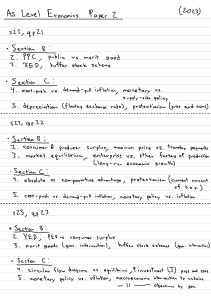 As Level Economics Paper 2 (2023)
s23, qp21
• Section B:
2. PPC, public vs. merit good
3. XED, buffer stock scheme
• Section C:
4. cost-push vs. demand-pull inflation, monetary vs.
supply-side policy
5. depreciation (floating exchange rate), protectionism (pros and cons)
s23, qp22
• Section B:
2. consumer & producer surplus, maximum price vs. transfer payments
3. market equilibrium, enterprise vs. other factors of production
(long-run economic growth)
• Section C:
4. absolute vs. comparative advantage, protectionism (current account
of b.o.p.)
5. cost-push vs. demand-pull inflation, monetary policy vs. inflation
s23, qp23
• Section B:
2. YED, PES vs. consumer surplus
3. merit goods (gov. intervention), buffer stock schemes (gov. intervention)
• Section C:
4. circular flow diagram vs. equilibrium, investment pros and cons
5. monetary policy vs. inflation, macroeconomic intervention to achieve
objectives by gov.